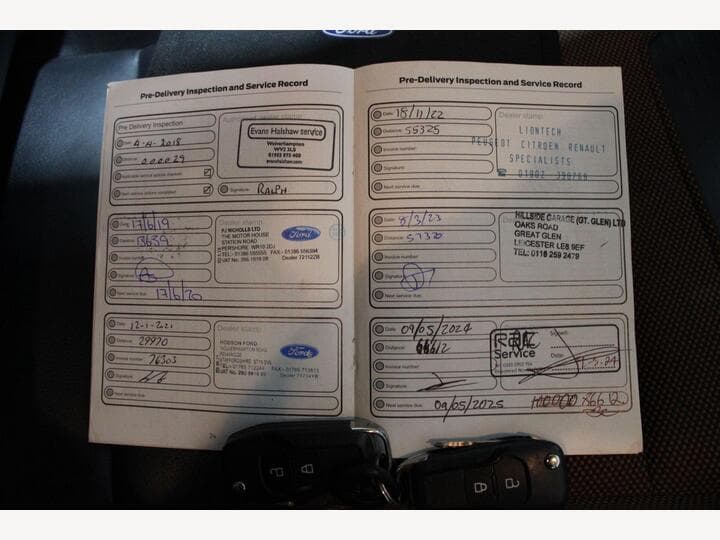 Ford
Pre-Delivery Inspection and Service Record
Pre Delivery Inspection
Date 4-4-2018
Distance 000029
Signature RALPH
Evans Halshaw service
Wolverhampton
WV2 2LS
01902 875 400
evanshalshaw.com
Date 17/6/19
Distance 13639
Invoice number
Signature
Next service due 17/6/20
Dealer stamp
PJ NICHOLLS LTD
THE MOTOR HOUSE
STATION ROAD
PERSHORE WR10 2DJ
Ford
Date 12-1-2021
Distance 29970
Invoice number 76303
Signature
Next service due
Dealer stamp
HODSON FORD
WOLVERHAMPTON ROAD
PENKRIDGE
Ford
24
Pre-Delivery Inspection and Service Record
Date: 18/11/22
Distance: 55325
Invoice number:
Signature:
Next service due:
Dealer stamp
LIONTECH
PEUGEOT CITROEN RENAULT
SPECIALISTS
Date: 8/3/23
Distance: 57320
Invoice number:
Signature:
Next service due:
HILLSIDE GARAGE (GT. GLEN) LTD
OAKS ROAD
GREAT GLEN
LEICESTER LE8 9EF
TEL: 0116 259 2479
Date: 09/05/2024
Distance:
Invoice number:
Signature:
Next service due: 09/05/2025
RAC
Service
Signed:
Date: